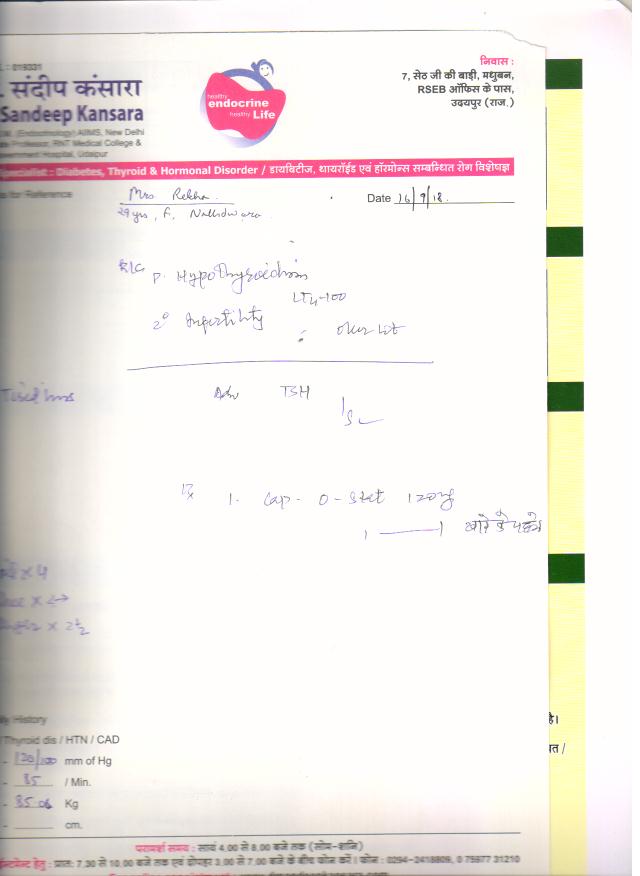 : 019331
संदीप कंसारा
Sandeep Kansara
(Endocrinology) AIIMS, New Delhi
Professor, RNT Medical College &
Hospital, Udaipur
healthy
endocrine
healthy Life
निवास :
7, सेठ जी की बाड़ी, मधुबन,
RSEB ऑफिस के पास,
उदयपुर (राज.)
Specialist : Diabetes, Thyroid & Hormonal Disorder / डायबिटीज, थायरॉईड एवं हॉरमोन्स सम्बन्धित रोग विशेषज्ञ
for Reference
Mrs Rekha
Date 16/9/18.
29 yrs, F.
P. Hypothyroidism
LT4-100
2° Infertility
Tiredness
Adv TSH
Rx 1. Cap - O-Stat 120mg
1 1
x 4
x 2½
History
Thyroid dis / HTN / CAD
- 120/100 mm of Hg
- 85 / Min.
- 85.06 Kg
- cm.
है।
परामर्श समय : सायं 4.00 से 8.00 बजे तक (सोम-शनि)
हेतु : प्रातः 7.30 से 10.00 बजे तक एवं दोपहर 3.00 से 7.00 बजे के बीच फोन करें। फोन : 0294-2418809, 0 75977 31210